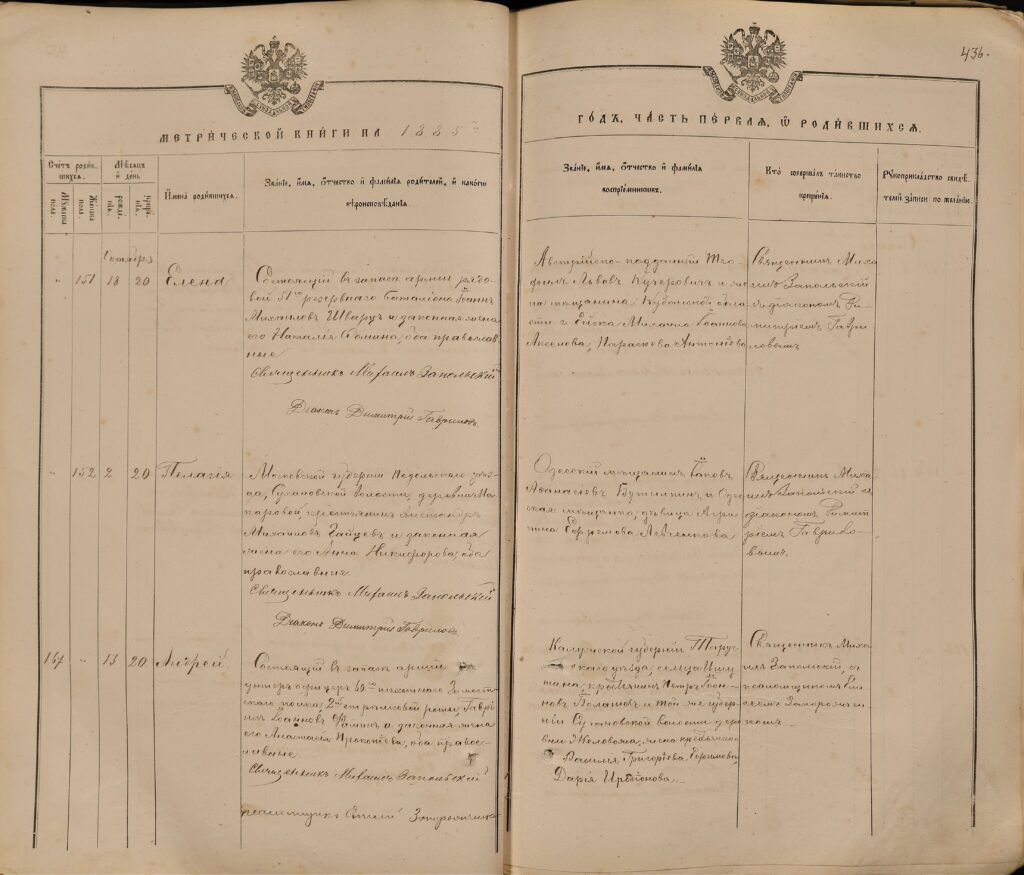 436.
МЕТРИЧЕСКОЙ КНИГИ НА 1885
ГОДЪ, ЧАСТЬ ПЕРВАЯ, Ѡ РОДИВШИХСЯ.
Счетъ родившихся.
Мужеска пола.
Женска пола.
Мѣсяцъ и день
рожденія.
крещенія.
Имена родившихся.
Званіе, имя, ѿчество и фамилія родителей, и какого
вѣроисповѣданія.
Званіе, имя, ѿчество и фамилія
воспріемниковъ.
Кто совершалъ таинство
крещенія.
Рукоприкладство свидѣтелей записи по желанію.
Октябрь
" 151 18 20 Елена
Состоящій въ запасѣ арміи рядо
вой 51го резервнаго баталіона Іоаннъ
Михаиловъ Шварцъ и законная жена
его Наталія Ѳомина, оба православ
ные
Священникъ Михаилъ Запольскій
Діаконъ Димитрій Гавриловъ
Австрійско-подданный Тео
филъ Львовъ Кучеровичъ и же
на мѣщанина Кубанской обла
сти г. Ейска Михаила Іоаннова
Аксенова, Параскева Антоніева
Священникъ Миха
илъ Запольскій
съ діакономъ Ди
митріемъ Гаври
ловымъ
" 152 2 20 Пелагія
Московской губерніи Подольскаго уѣз
да, Сухановской волости, деревни Ма
каровой, крестьянинъ Александръ
Михаиловъ Зайцевъ и законная
жена его Анна Никифорова, оба
православные.
Священникъ Михаилъ Запольскій
Діаконъ Димитрій Гавриловъ
Одесскій мѣщанинъ Іаковъ
Аѳанасіевъ Бутылкинъ и Одес
ская мѣщанка, дѣвица Агрип
пина Ефремова
Священникъ Миха
илъ Запольскій съ
діакономъ Димит
ріемъ Гаврило-
вымъ.
167 " 13 20 Андрей
Состоящій въ запасѣ арміи
унтеръ-офицеръ 60го пѣхотнаго Замост
скаго полка, 2й стрѣлковой роты, Гаврі
илъ Іоанновъ и законная жена
его Анастасія Прокопіева, оба право
славные
Священникъ Михаилъ Запольскій
псаломщикъ
Калужской губерніи Тарус
скаго уѣзда, сельца
крестьянинъ Петръ Іоан-
новъ и той же губер-
ніи волости дер
евни жена крестьянина
Василія Григоріева Ефимова,
Дарія
Священникъ Миха
илъ Запольскій, съ
псаломщикомъ